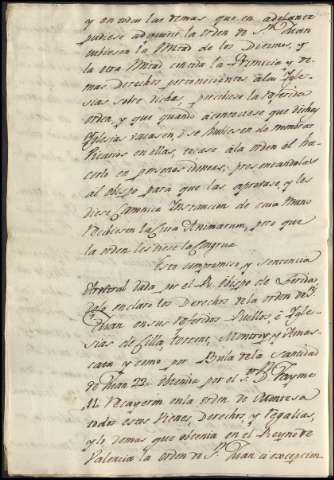 y en todas las demas que en adelante
pudiese adquirir la orden de Sn. Juan
hubiesen la Mitad de los Diezmos, y
la otra Mitad con toda la Primicia y de
mas Derechos pertenecientes a las Ygle-
sias sobre dichas, percibiese la referida
orden, y que quando aconteciese que dichas
Yglesias vacasen, ó se hubiesen de nombrar
Vicarios en ellas, tocase a la orden el ha-
cerlo en personas idoneas; presentandolas
al obispo para que las aprovase, y les
diese Canonica Institucion de cuia Mano
recibiesen la Cura Animarum, pero que
la orden les diese la Congrua
Este compromiso, y sentencia
Arvitral dada por el R. Obispo de
declaró los Derechos de la orden de Sn.
Juan en sus referidos Pueblos é Ygle-
sias de Cilla, Torrente, Monroy, y
y como por Bula de la Santidad
de Juan 22. obtenida por el Sr. D. Jayme
II. Recayeron en la orden de Montesa
todos estos Vienes, Derechos, y Regalias,
y lo demas que obtenia en el Reyno de
Valencia la orden de Sn. Juan á excepcion